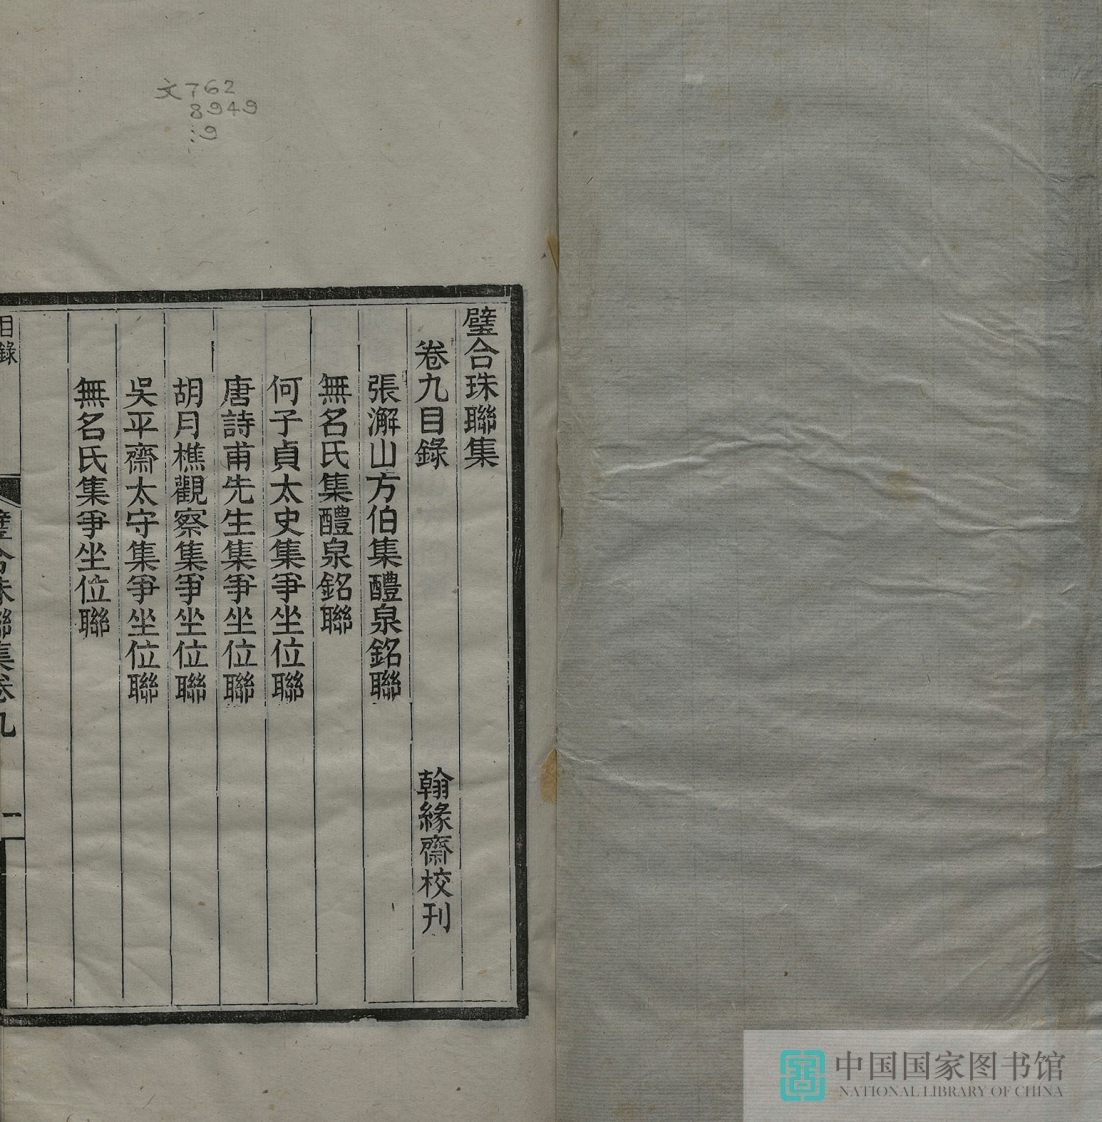 文762
8949
:9
璧合珠聯集
卷九目錄 翰緣齋校刊
張澥山方伯集醴泉銘聯
無名氏集醴泉銘聯
何子貞太史集爭坐位聯
唐詩甫先生集爭坐位聯
胡月樵觀察集爭坐位聯
吳平齋太守集爭坐位聯
無名氏集爭坐位聯
目錄
璧合珠聯集卷九
一
中国国家图书馆
NATIONAL LIBRARY OF CHINA